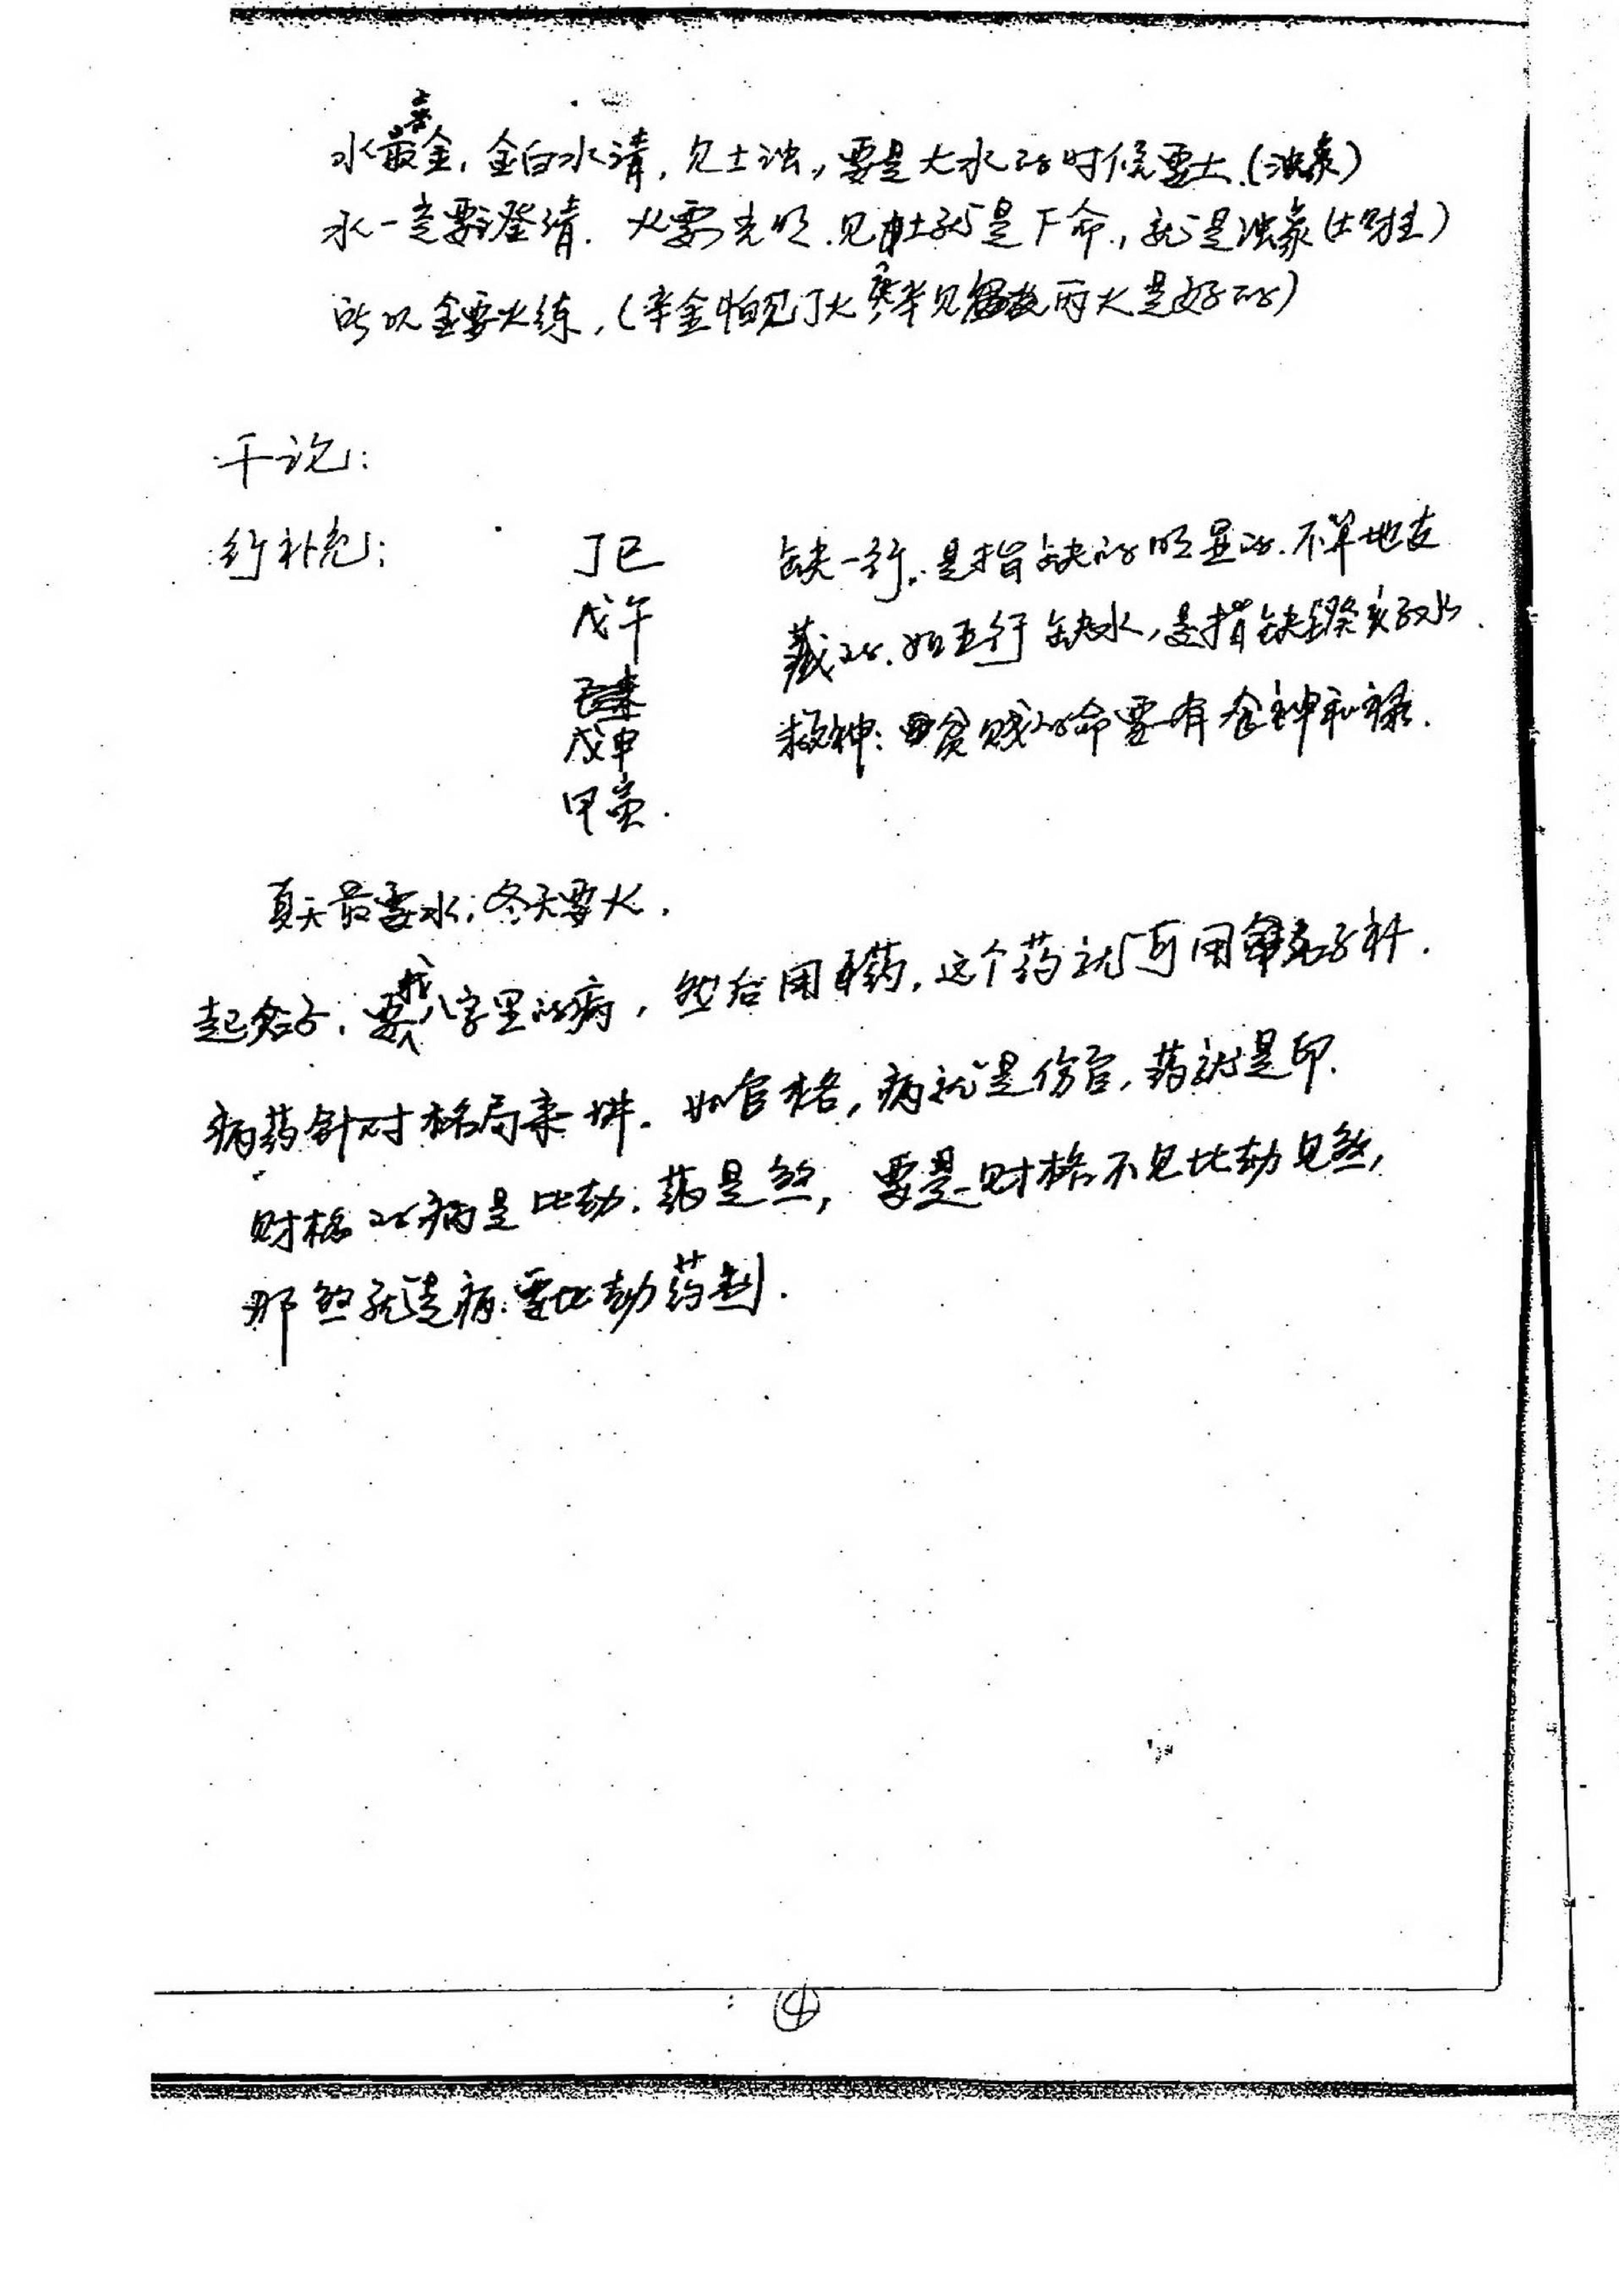 水最喜金,金白水清,见土浊,要是大水的时候要土.(浊象)
水一定要澄清.火要光明.见土就是下命,就是浊象(土多时)
所以金要火练,(辛金怕见丁火,辛见丙火是好的)
干论:
行补充:
丁巳
戊午
戊申
甲寅.
缺一行,是指缺的明显的.不单地支
藏的.如五行缺水,是指缺壬癸亥子水.
救神:贫贱的命要有食神和禄.
夏天最要水;冬天要火.
起名子,要找八字里的病,然后用药,这个药就可用名子补.
病药针对格局来讲.如官格,病就是伤官,药就是印.
财格的病是比劫.药是煞,要是财格不见比劫见煞,
那煞就是病.要比劫药制.
④